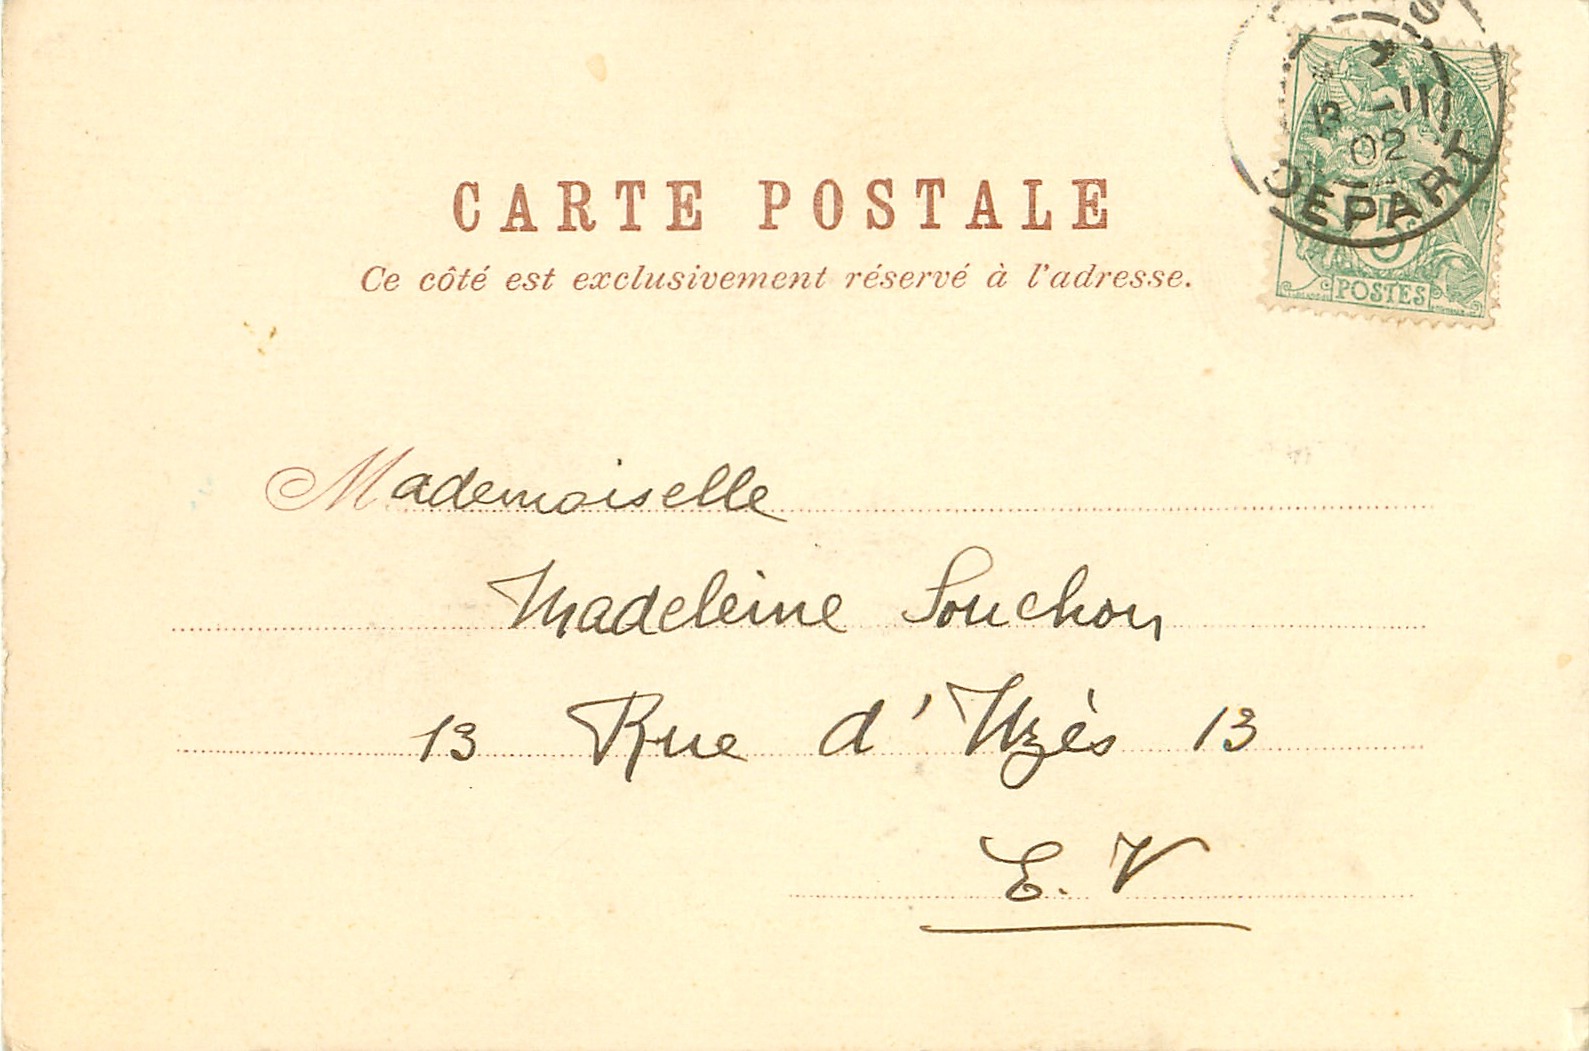 CARTE POSTALE
Ce côté est exclusivement réservé à l'adresse.
02
DEPART
5c
POSTES
Mademoiselle
Madeleine Souchon
13 Rue d'Uzès 13
E. V